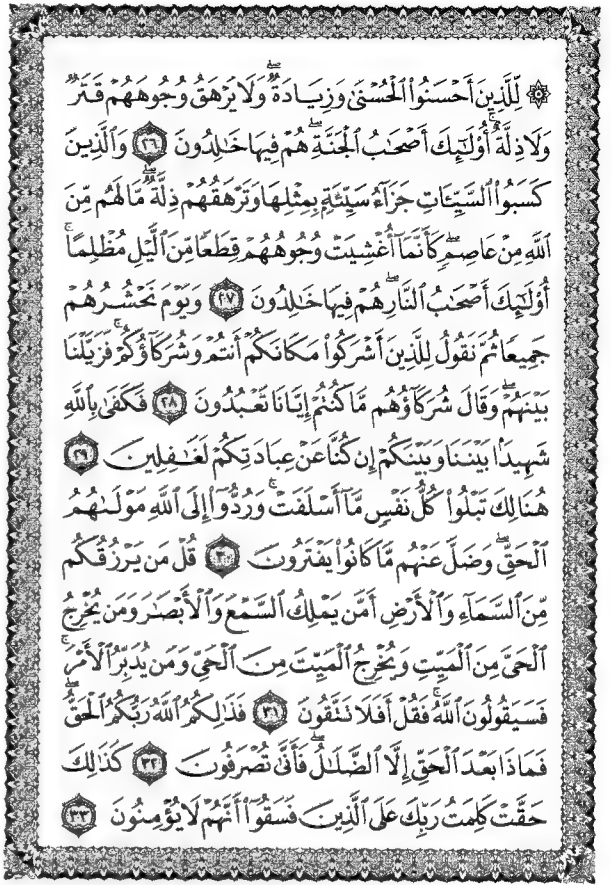 ۞ لِّلَّذِينَ أَحْسَنُوا۟ ٱلْحُسْنَىٰ وَزِيَادَةٌ ۖ وَلَا يَرْهَقُ وُجُوهَهُمْ قَتَرٌ
وَلَا ذِلَّةٌ ۚ أُو۟لَٰٓئِكَ أَصْحَٰبُ ٱلْجَنَّةِ ۖ هُمْ فِيهَا خَٰلِدُونَ ٢٦ وَٱلَّذِينَ
كَسَبُوا۟ ٱلسَّيِّـَٔاتِ جَزَآءُ سَيِّئَةٍۭ بِمِثْلِهَا وَتَرْهَقُهُمْ ذِلَّةٌ ۖ مَّا لَهُم مِّنَ
ٱللَّهِ مِنْ عَاصِمٍ ۖ كَأَنَّمَآ أُغْشِيَتْ وُجُوهُهُمْ قِطَعًا مِّنَ ٱلَّيْلِ مُظْلِمًا ۚ
أُو۟لَٰٓئِكَ أَصْحَٰبُ ٱلنَّارِ ۖ هُمْ فِيهَا خَٰلِدُونَ ٢٧ وَيَوْمَ نَحْشُرُهُمْ
جَمِيعًا ثُمَّ نَقُولُ لِلَّذِينَ أَشْرَكُوا۟ مَكَانَكُمْ أَنتُمْ وَشُرَكَآؤُكُمْ ۚ فَزَيَّلْنَا
بَيْنَهُمْ ۖ وَقَالَ شُرَكَآؤُهُم مَّا كُنتُمْ إِيَّانَا تَعْبُدُونَ ٢٨ فَكَفَىٰ بِٱللَّهِ
شَهِيدًۢا بَيْنَنَا وَبَيْنَكُمْ إِن كُنَّا عَنْ عِبَادَتِكُمْ لَغَٰفِلِينَ ٢٩
هُنَالِكَ تَبْلُوا۟ كُلُّ نَفْسٍ مَّآ أَسْلَفَتْ ۚ وَرُدُّوٓا۟ إِلَى ٱللَّهِ مَوْلَىٰهُمُ
ٱلْحَقِّ ۖ وَضَلَّ عَنْهُم مَّا كَانُوا۟ يَفْتَرُونَ ٣٠ قُلْ مَن يَرْزُقُكُم
مِّنَ ٱلسَّمَآءِ وَٱلْأَرْضِ أَمَّن يَمْلِكُ ٱلسَّمْعَ وَٱلْأَبْصَٰرَ وَمَن يُخْرِجُ
ٱلْحَىَّ مِنَ ٱلْمَيِّتِ وَيُخْرِجُ ٱلْمَيِّتَ مِنَ ٱلْحَىِّ وَمَن يُدَبِّرُ ٱلْأَمْرَ ۚ
فَسَيَقُولُونَ ٱللَّهُ ۚ فَقُلْ أَفَلَا تَتَّقُونَ ٣١ فَذَٰلِكُمُ ٱللَّهُ رَبُّكُمُ ٱلْحَقُّ ۖ
فَمَاذَا بَعْدَ ٱلْحَقِّ إِلَّا ٱلضَّلَٰلُ ۖ فَأَنَّىٰ تُصْرَفُونَ ٣٢ كَذَٰلِكَ
حَقَّتْ كَلِمَتُ رَبِّكَ عَلَى ٱلَّذِينَ فَسَقُوٓا۟ أَنَّهُمْ لَا يُؤْمِنُونَ ٣٣